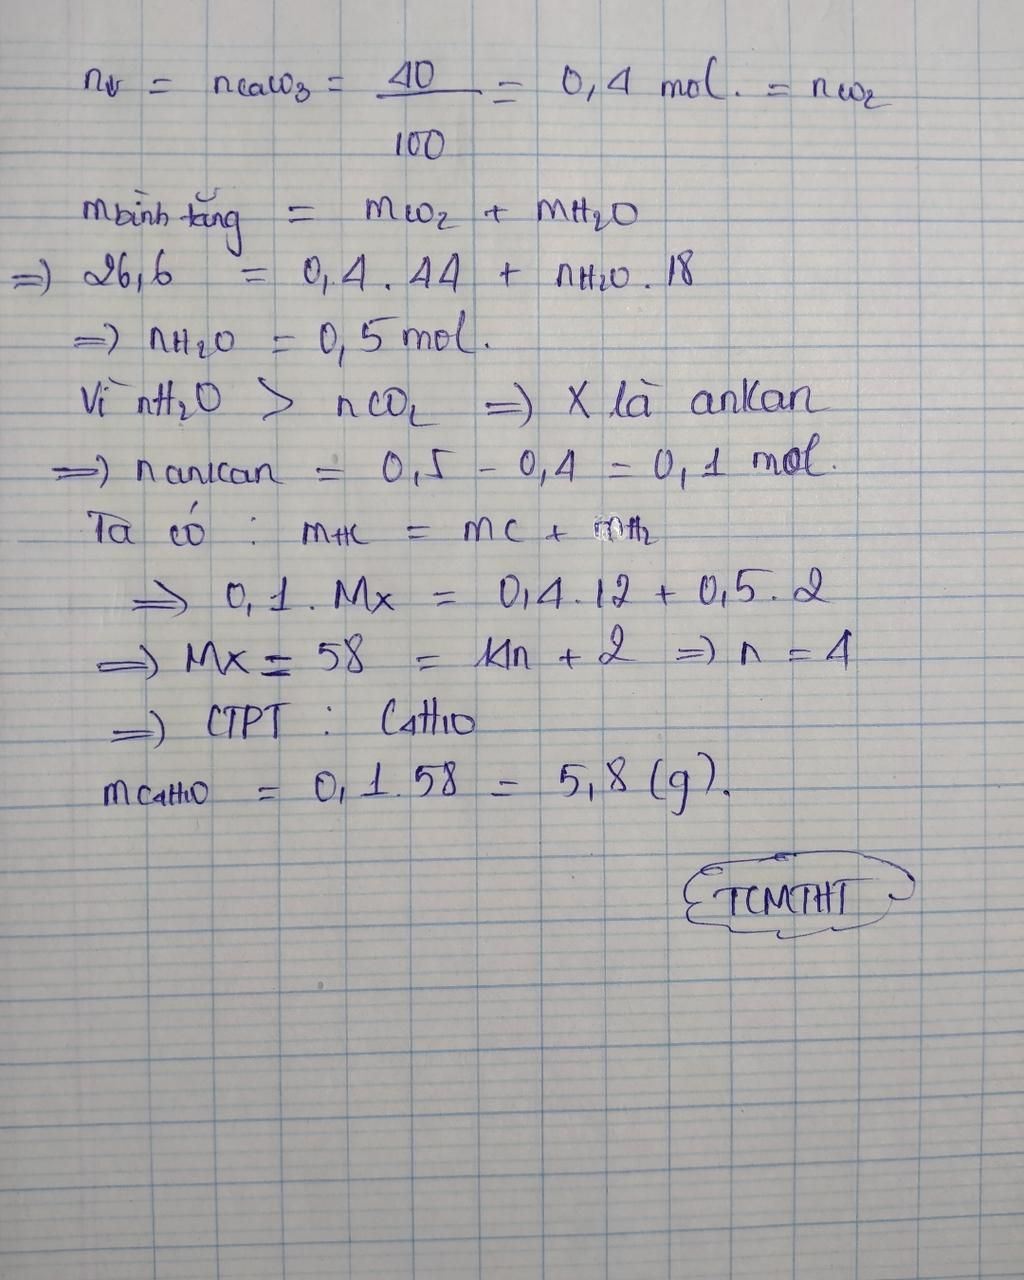 n↓ = nCaCO3 = 40/100 = 0,4 mol. = nCO2
mbình tăng = mCO2 + mH2O
=> 26,6 = 0,4 . 44 + nH2O . 18
=> nH2O = 0,5 mol.
Vì nH2O > nCO2 => X là ankan
=> n ankan = 0,5 - 0,4 = 0,1 mol.
Ta có : mHC = mC + mH2
=> 0,1 . Mx = 0,4.12 + 0,5.2
=> Mx = 58 = 14n + 2 => n = 4
=> CTPT : C4H10
mC4H10 = 0,1.58 = 5,8 (g).
TCMTHT